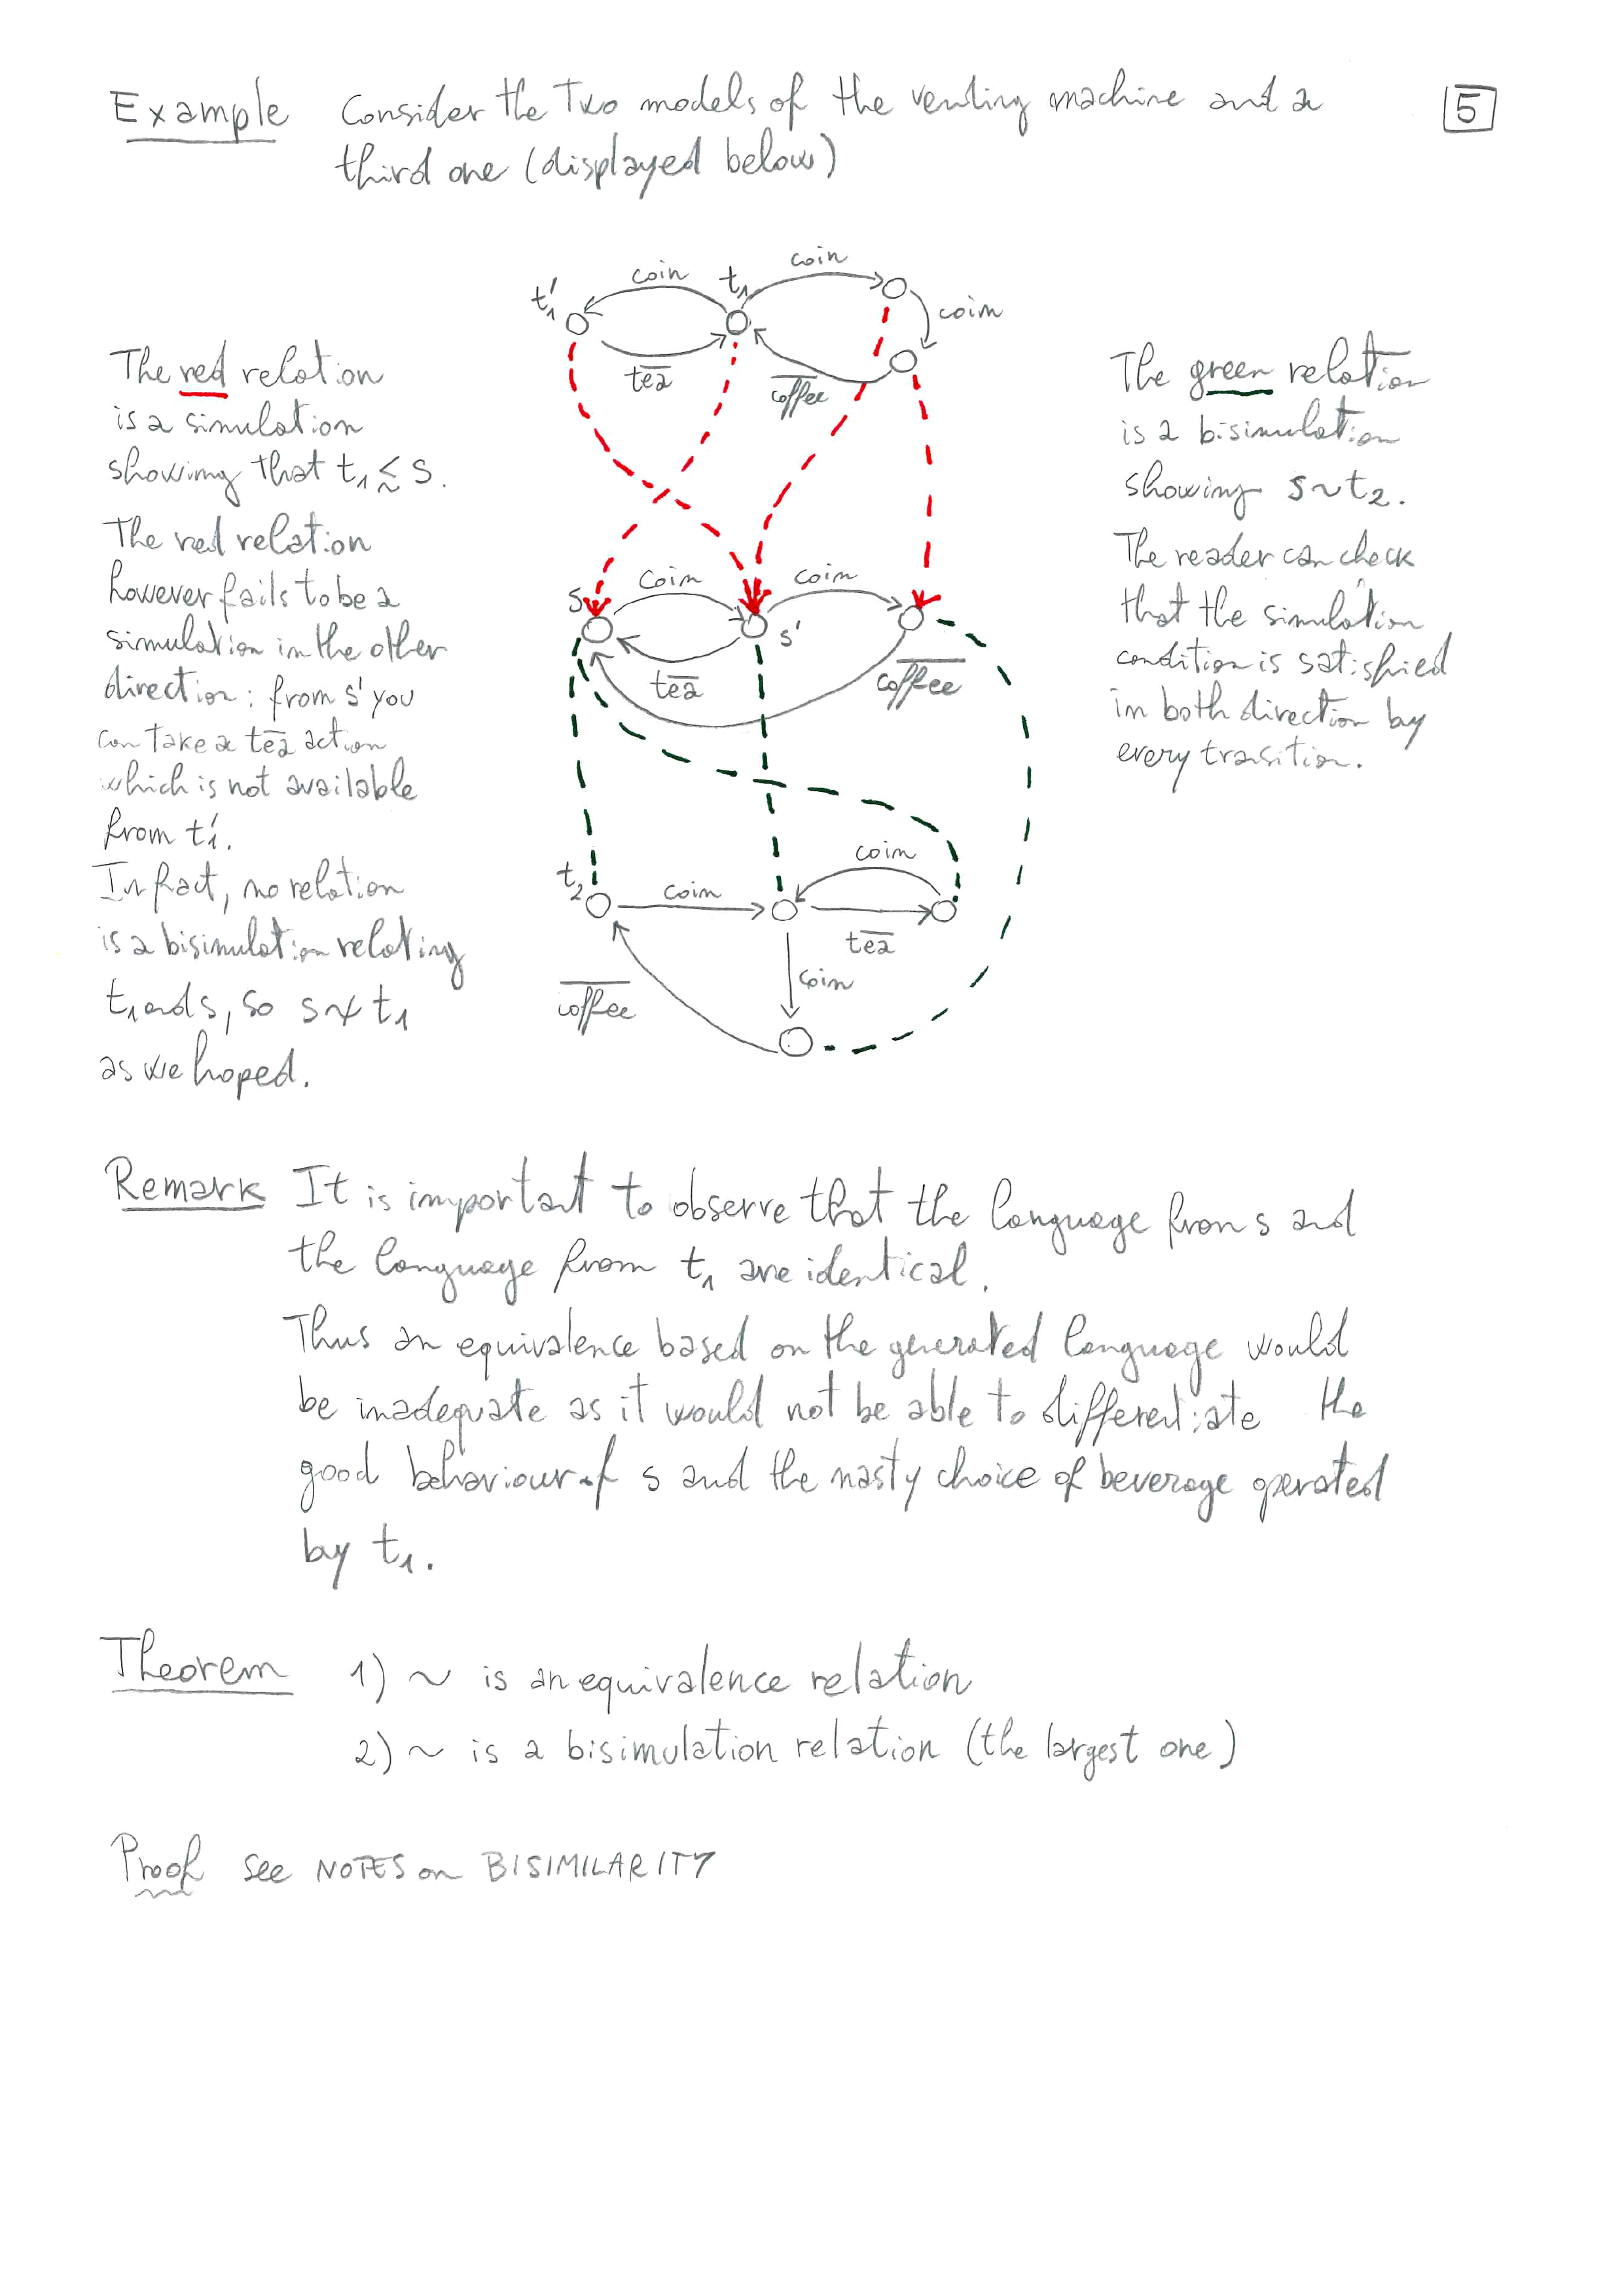 Example Consider the two models of the vending machine and a
third one (displayed below)
5
coin
t₁
coin
t₁'
coin
t̅e̅a̅
c̅o̅f̅f̅e̅e̅
The red relation
is a simulation
showing that t₁ ≲ s.
The red relation
however fails to be a
simulation in the other
direction: from s' you
can take a t̅e̅a̅ action
which is not available
from t₁'.
In fact, no relation
is a bisimulation relating
t₁ and s, so s ≁ t₁
as we hoped.
The green relation
is a bisimulation
showing s ~ t₂.
The reader can check
that the simulation
condition is satisfied
in both direction by
every transition.
s
coin
coin
s'
t̅e̅a̅
c̅o̅f̅f̅e̅e̅
t₂
coin
coin
t̅e̅a̅
coin
c̅o̅f̅f̅e̅e̅
Remark It is important to observe that the language from s and
the language from t₁ are identical.
Thus an equivalence based on the generated language would
be inadequate as it would not be able to differentiate the
good behaviour of s and the nasty choice of beverage operated
by t₁.
Theorem 1) ~ is an equivalence relation
2) ~ is a bisimulation relation (the largest one)
Proof see NOTES on BISIMILARITY